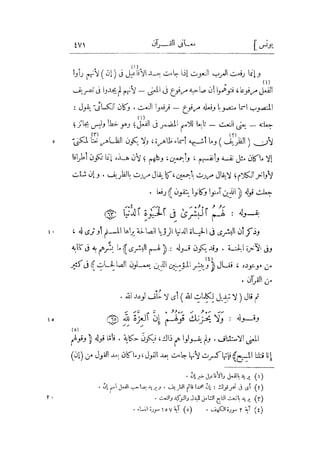 يونس ]   معانى القرآن   ٤٧١
و إنما رفعت العرب النعوت إذا جاءت بعد الأفاعيل (١) فى (إنّ) لأنهم رأوا
الفعل مرفوعا، فتوهموا أن صاحبه مرفوع فى المعنى — لأنهم لم يجدوا فى تصريف
المنصوب اسما منصوبا وفعله مرفوع — فرفعوا النعت . وكان الكسائىّ يقول :
جعلته — يعنى النعت — تابعا للاسم المضمر فى الفعل (٣)؛ وهو خطأ وليس بجائز؛
لأن (الظريف) وما أشبهه أسماء ظاهرة، ولا يكون الظاهر نعتا لمكنىّ ٥
إلا ما كان مثل نفسه وأنفسهم ، وأجمعين، وكلهم ؛ لأن هذه إنما تكون أطرافا
لأواخر الكلام؛ لا يقال مررت بأجمعين، كما يقال مررت بالظريف . و إن شئت
جعلت قوله (الذين آمنوا وكانوا يتقون) رفعا .
بقـوله : لَهُمُ ٱلْبُشْرَىٰ فِى ٱلْحَيَوٰةِ ٱلدُّنْيَا
وذكر أن البشرى فى الحياة الدنيا الرؤيا الصالحة يراها المسلم أو ترى له ، ١٠
وفى الآخرة الجنة . وقد يكون قوله : (لهم البشرى) ما بشرهم به فى كتابه
من موعوده ، فقال (ويبشر المؤمنين الذين يعملون الصالحات) (٤) فى كثير
من القرآن .
ثم قال (لا تبديل لكلمات الله) أى لا خُلْف لوعد الله .
وقـوله : وَلَا يَحْزُنكَ قَوْلُهُمْ إِنَّ ٱلْعِزَّةَ لِلَّهِ (٦٥) ١٥
المعنى الاستئناف . ولم يقولوا هم ذاك ، فيكون حكاية . فأما قوله (وقولهم (٥)
إنا قتلنا المسيح) فإنها كسرت لأنها جاءت بعد القول ، وما كان بعد القول من (إنّ)
(١) يريد بالفعل والأفاعيل خبر إنّ .
(٢) أى فى نحو قولك : إن محمدا قائم الظريف . و يريد بصاحب الفعل اسم إنّ .
(٣) يريد بالنعت التابع الشامل للبدل والتوكيد والنعت . ٢٠
(٤) آية ٢ سورة الكهف .   (٥) آية ١٥٧ سورة النساء .